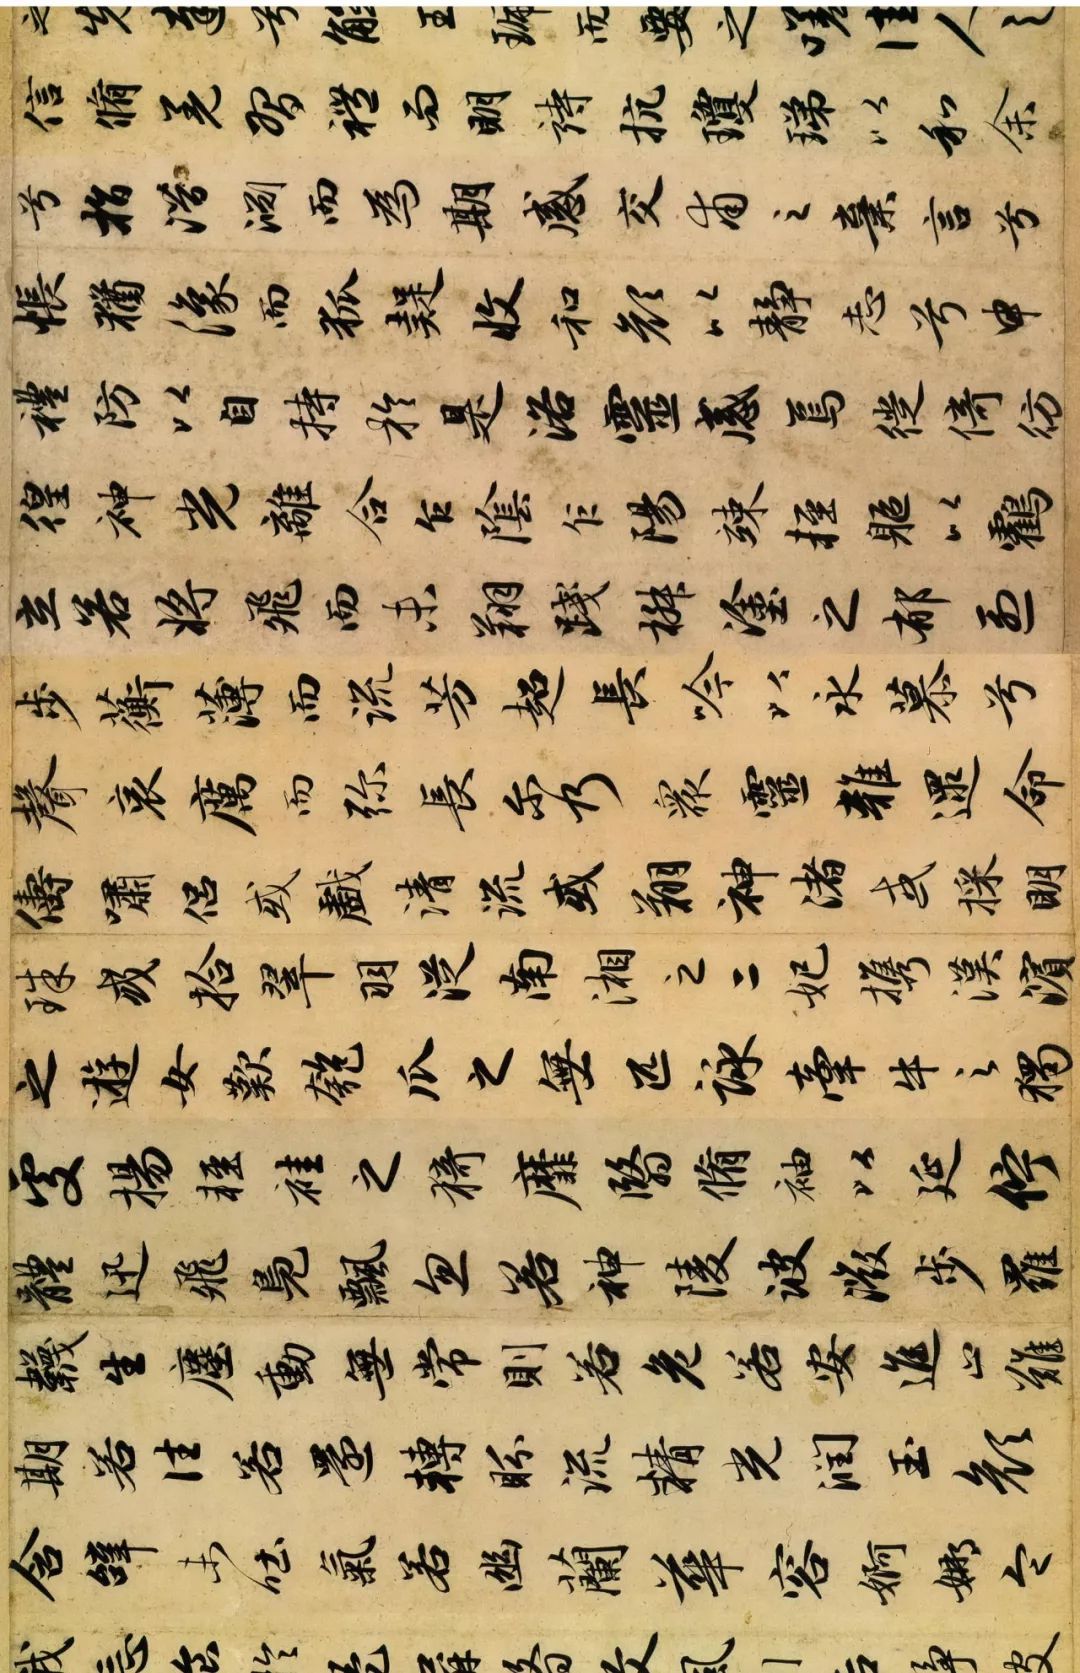 之先達兮解玉珮而要之嗟佳人之
信脩羌習禮而明詩抗瓊珶以和余
兮指潛淵而為期感交甫之棄言兮
悵猶豫而狐疑收和顏以靜志兮申
禮防以自持於是洛靈感焉徙倚彷
徨神光離合乍陰乍陽竦輕軀以鶴
立若將飛而未翔踐椒塗之郁烈
步蘅薄而流芳超長吟以永慕兮
聲哀厲而彌長爾乃衆靈雜遝命
儔嘯侶或戲清流或翔神渚或採明
珠或拾翠羽從南湘之二妃攜漢濱
之遊女歎匏瓜之無匹詠牽牛之獨
處揚輕袿之猗靡翳脩袖以延佇
體迅飛鳧飄忽若神陵波微步羅
韈生塵動無常則若危若安進止難
期若往若還轉眄流精光潤玉顏
含辭未吐氣若幽蘭華容婀娜令
我忘飡於是屏翳收風川后靜波